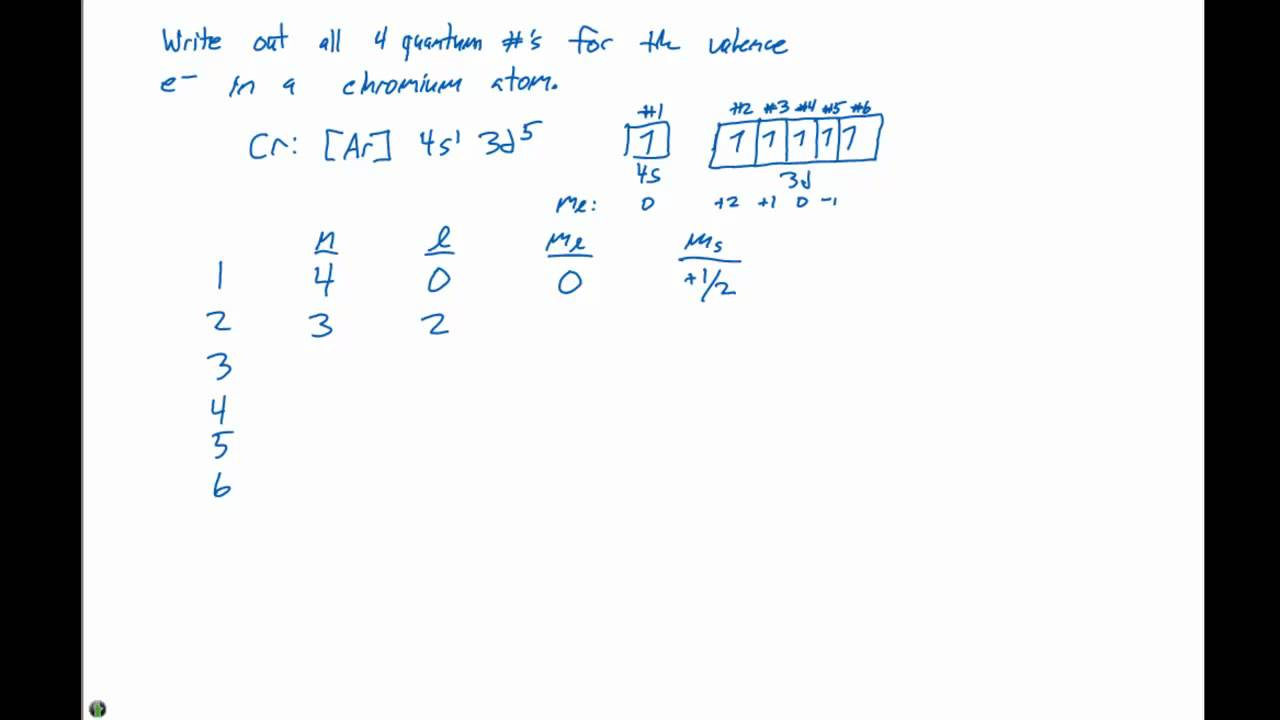 Write out all 4 quantum #'s for the valence
e⁻ in a chromium atom.
#1 #2 #3 #4 #5 #6
Cr: [Ar] 4s¹ 3d⁵ 1 1 1 1 1 1
4s 3d
mℓ: 0 +2 +1 0 -1
n ℓ mℓ ms
1 4 0 0 +1/2
2 3 2
3
4
5
6